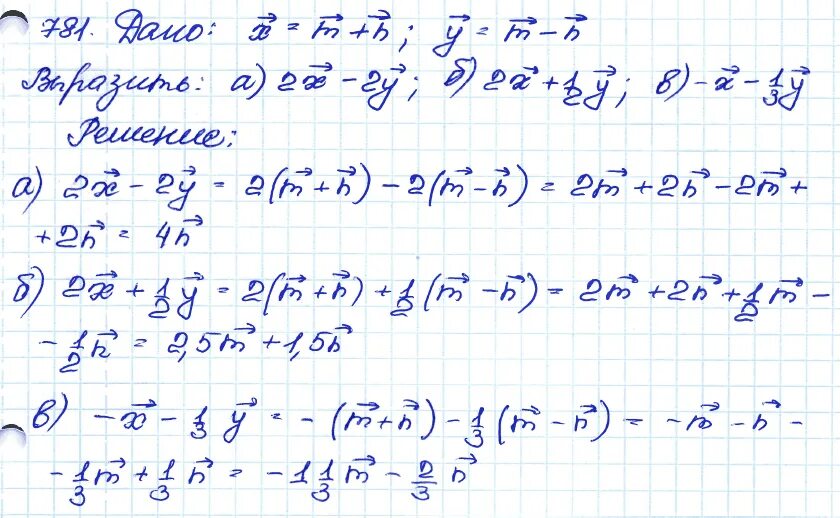 781. Дано: x⃗ = m⃗ + n⃗; y⃗ = m⃗ − n⃗
Выразить: а) 2x⃗ − 2y⃗; б) 2x⃗ + 1/2 y⃗; в) −x⃗ − 1/3 y⃗
Решение:
а) 2x⃗ − 2y⃗ = 2(m⃗ + n⃗) − 2(m⃗ − n⃗) = 2m⃗ + 2n⃗ − 2m⃗ +
+ 2n⃗ = 4n⃗
б) 2x⃗ + 1/2 y⃗ = 2(m⃗ + n⃗) + 1/2 (m⃗ − n⃗) = 2m⃗ + 2n⃗ + 1/2 m⃗ −
− 1/2 n⃗ = 2,5m⃗ + 1,5n⃗
в) −x⃗ − 1/3 y⃗ = − (m⃗ + n⃗) − 1/3 (m⃗ − n⃗) = −m⃗ − n⃗ −
− 1/3 m⃗ + 1/3 n⃗ = −1 1/3 m⃗ − 2/3 n⃗